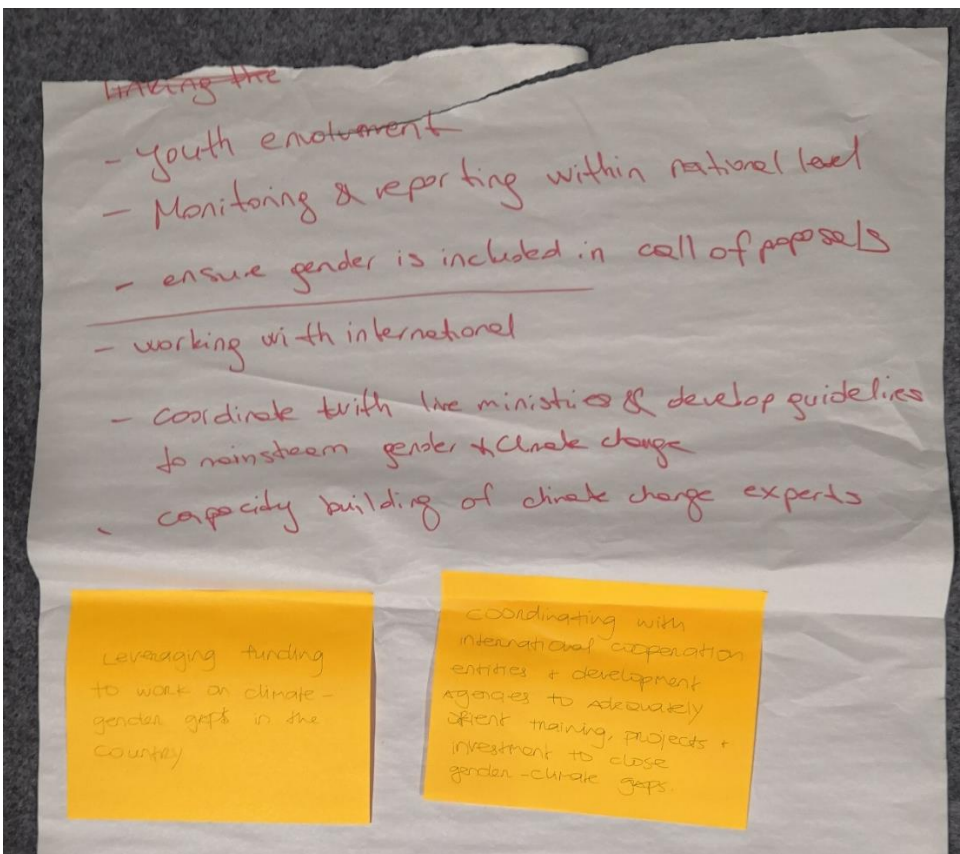 linking the
- Youth envolvement
- Monitoring & reporting within national level
- ensure gender is included in call of poposals
- working with international
- coordinate with line ministries & develop guidelines
to mainstream gender & climate change
- capacity building of climate change experts
Leveraging funding
to work on climate-
gender gaps in the
country
Coordinating with
international cooperation
entities + development
agencies to adequately
orient training, projects +
investment to close
gender-climate gaps.